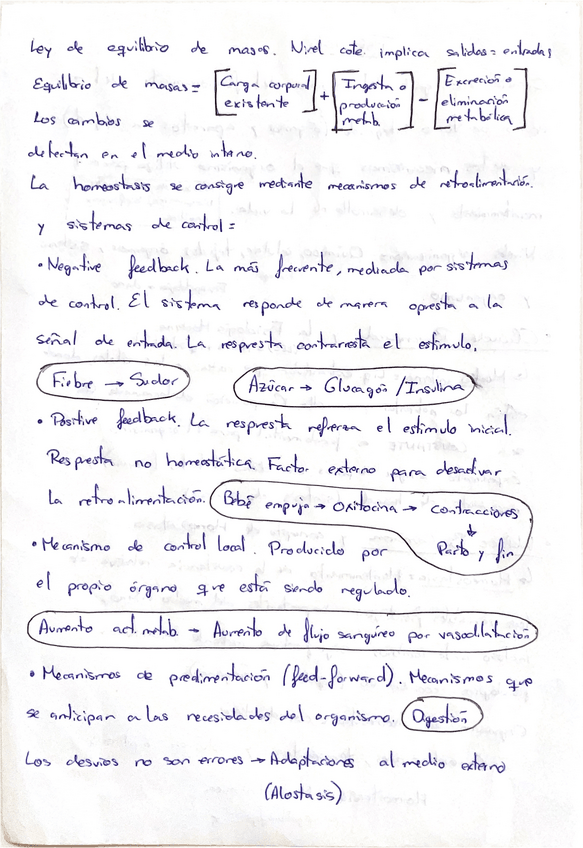 Ley de equilibrio de masas. Nivel cote. implica salidas = entradas
Equilibrio de masas = [Carga corporal existente] + [Ingesta o producción metab.] - [Excreción o eliminación metabólica]
Los cambios se
detectan en el medio interno.
La homeostasis se consigue mediante mecanismos de retroalimentación.
y sistemas de control =
• Negative feedback. La más frecuente, mediada por sistemas
de control. El sistema responde de manera opuesta a la
señal de entrada. La respuesta contrarresta el estímulo.
Fiebre → Sudor
Azúcar → Glucagón / Insulina
• Positive feedback. La respuesta refuerza el estímulo inicial.
Respuesta no homeostática. Factor externo para desactivar
la retroalimentación. Bebé empuja → Oxitocina → Contracciones
↓
Parto y fin
• Mecanismo de control local. Producido por
el propio órgano que está siendo regulado.
Aumento act. metab. → Aumento de flujo sanguíneo por vasodilatación
• Mecanismos de predimentación (feed-forward). Mecanismos que
se anticipan a las necesidades del organismo. Digestión
Los desvíos no son errores → Adaptaciones al medio externo
(Alostasis)